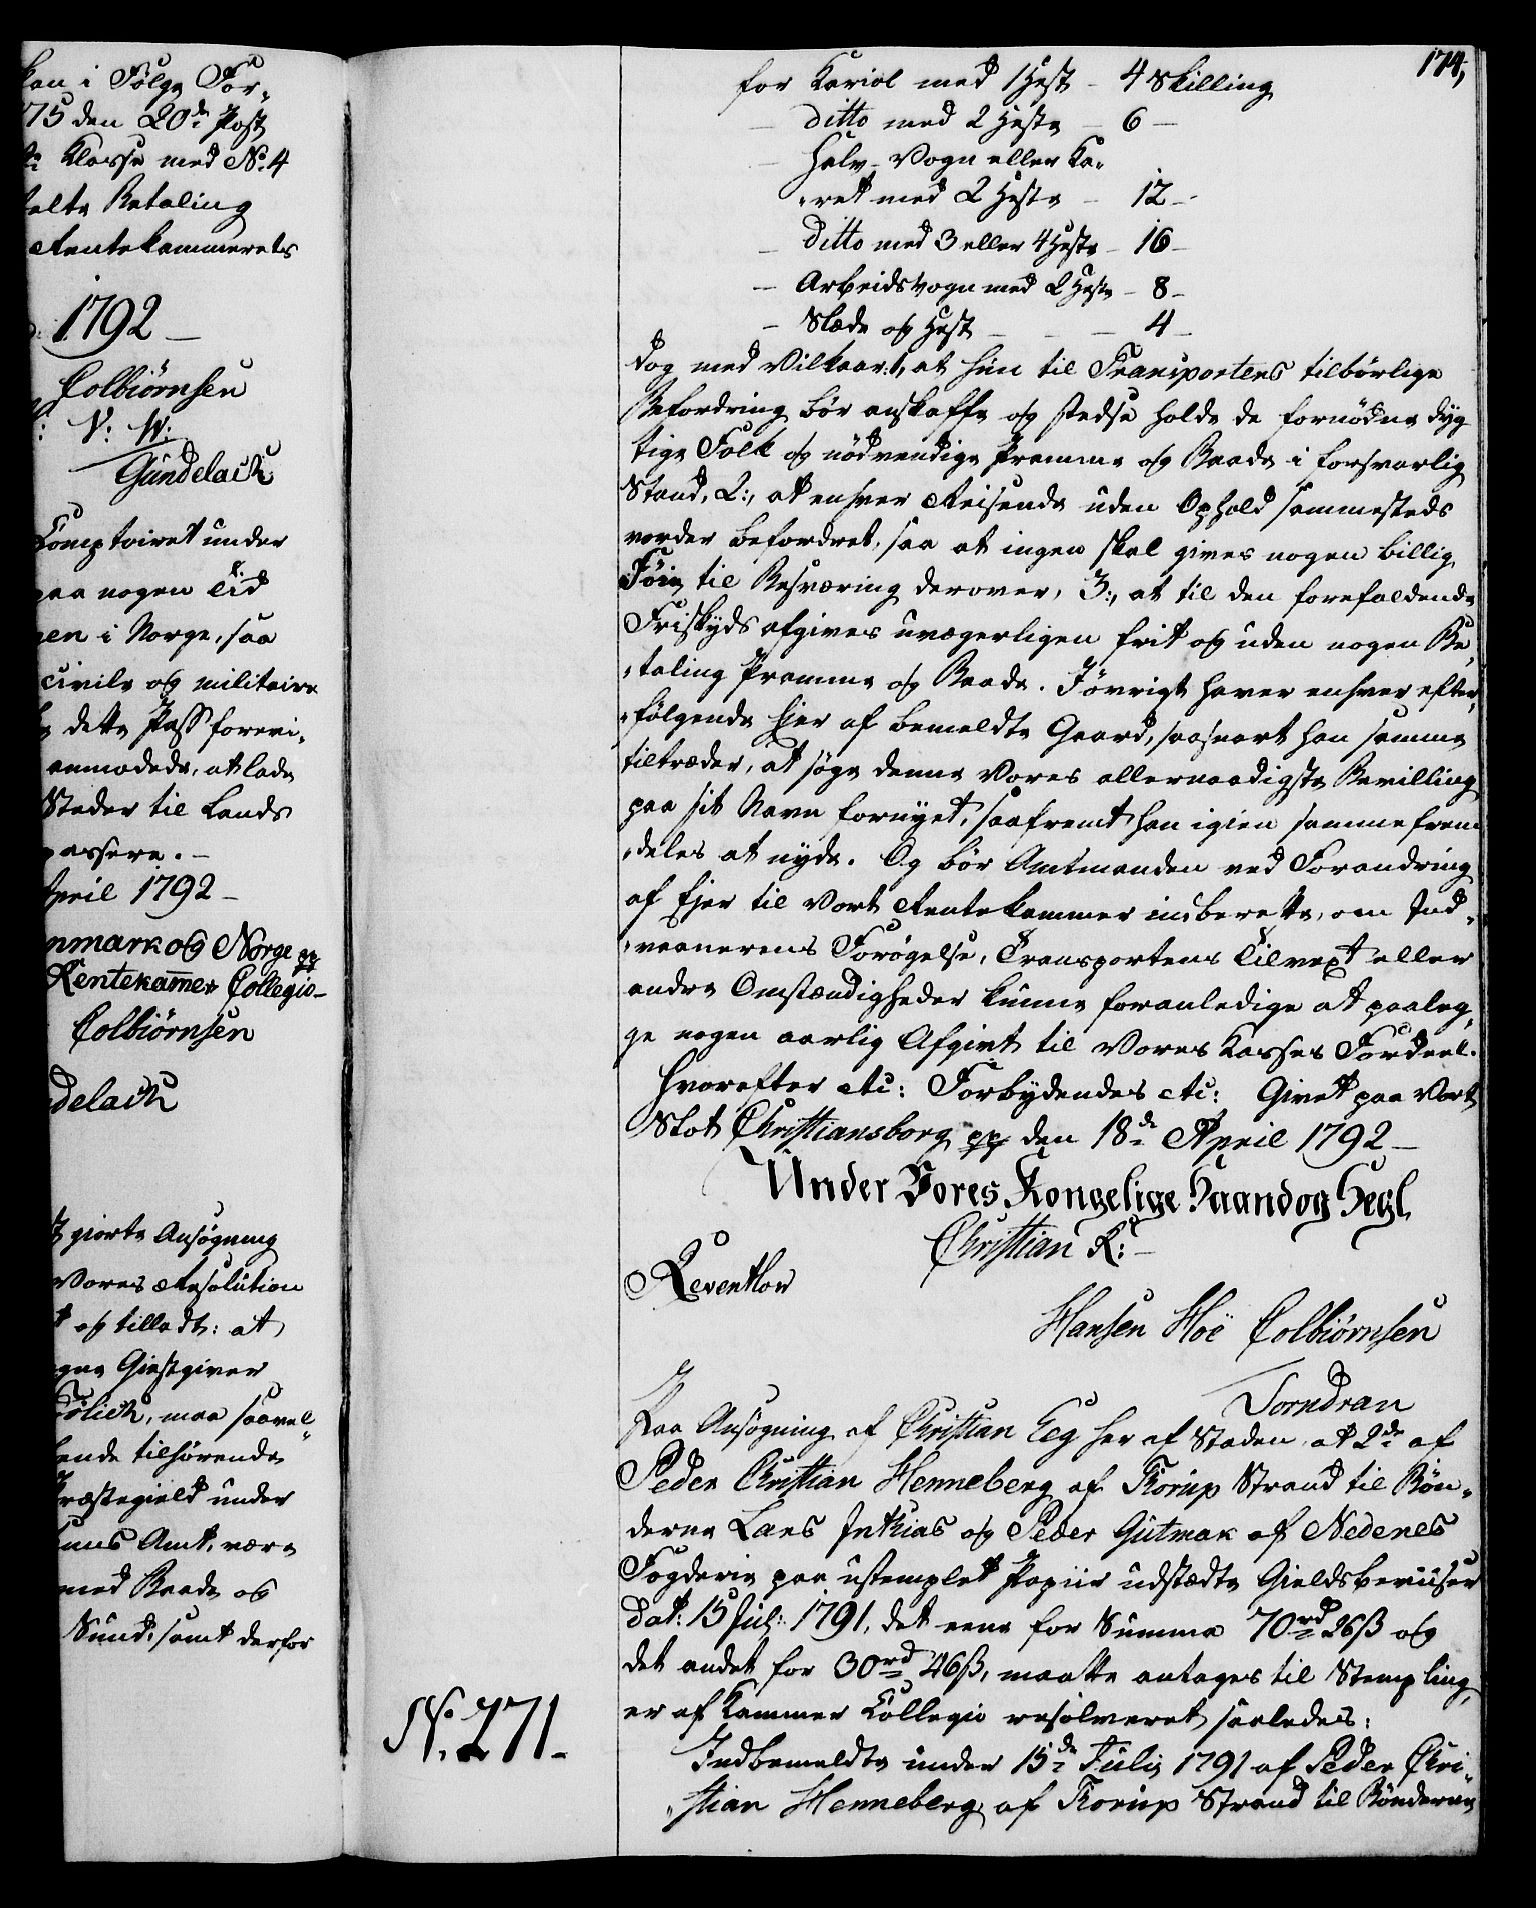 kan i Følge For„
75 den 20de Post
Klasse med No. 4
talte Betaling
Rentekammerets
1792 —
Colbiørnsen
V: W:
Gundelach
Comptoiret under
paa nogen Tid
gen i Norge, saa
civile og militaire
dette Pass forevi„
anmodede, at lade
Steder til Lands
passere. —
April 1792 —
nmark og Norge pp
Rentekamer Collegio —
Colbiørnsen
delach
giorte Ansøgning
Vores Resolution
og tilladt: at
Giestgiver
maa saavel„
ende tilhørende
Præstegield under
huus Amt, være
med Baade og
Sund, samt derfor
174,
for Kariol med 1 Hest — 4 Skilling
— ditto med 2 Heste — 6 —
— Halv-Vogn eller Ka„
„ret med 2 Heste — 12 —
— ditto med 3 eller 4 Heste — 16 —
— Arbeidsvogn med 2 Heste — 8 —
— Slæde og Hest — — — 4 —
dog med Vilkaar: 1, at hun til Transportens tilbørlige
Befordring bør anskaffe og stedse holde de fornødne dyg
tige Folk og nødvendige Pramme og Baade i forsvarlig
Stand, 2:, at enhver Reisende uden Ophold sammesteds
vorder befordret, saa at ingen skal gives nogen billig
Føie til Besværing derover, 3:, at til den forefaldende
Friskyds afgives uvægerligen frit og uden nogen Be„
„taling Pramme og Baade. Iøvrigt haver enhver efter„
„følgende Ejer af bemeldte Gaard, saasnart han samme
tiltræder, at søge denne Vores allernaadigste Bevilling
paa sit Navn fornyet, saafremt han igien samme frem
„deles at nyde. Og bør Amtmanden ved Forandring
af Ejer til Vort Rentekammer indberette, om Ind„
„vaanernes Forøgelse, Transportens Tilvext eller
andre Omstændigheder kunne foranledige at paaleg„
ge nogen aarlig Afgivt til Vores Kasses Fordeel.
Hvorefter etc: Forbydendes etc: Givet paa Vort
Slot Christiansborg pp den 18de April 1792 —
Under Vores Kongelige Haand og Segl.
Christian R: —
Reventlow
Hansen Hoë Colbiørnsen
Torndran
Paa Ansøgning af Christian Eeg her af Staden, at 2de af
Peder Christian Henneberg af Torup Strand til Bøn„
derne Lars Inthias og Peder Gutmak af Nedenes
Fogderie paa ustemplet Papiir udstædte Gieldsbeviiser
dat: 15 Jul: 1791, det eene for Summa 70rd 26ß og
det andet for 30rd 46ß, maatte antages til Stempling,
er af Kammer Collegio resolveret saaledes:
No. 271.
Indbemeldte under 15de Julii 1791 af Peder Chri„
„stian Henneberg af Torup Strand til Bønderne